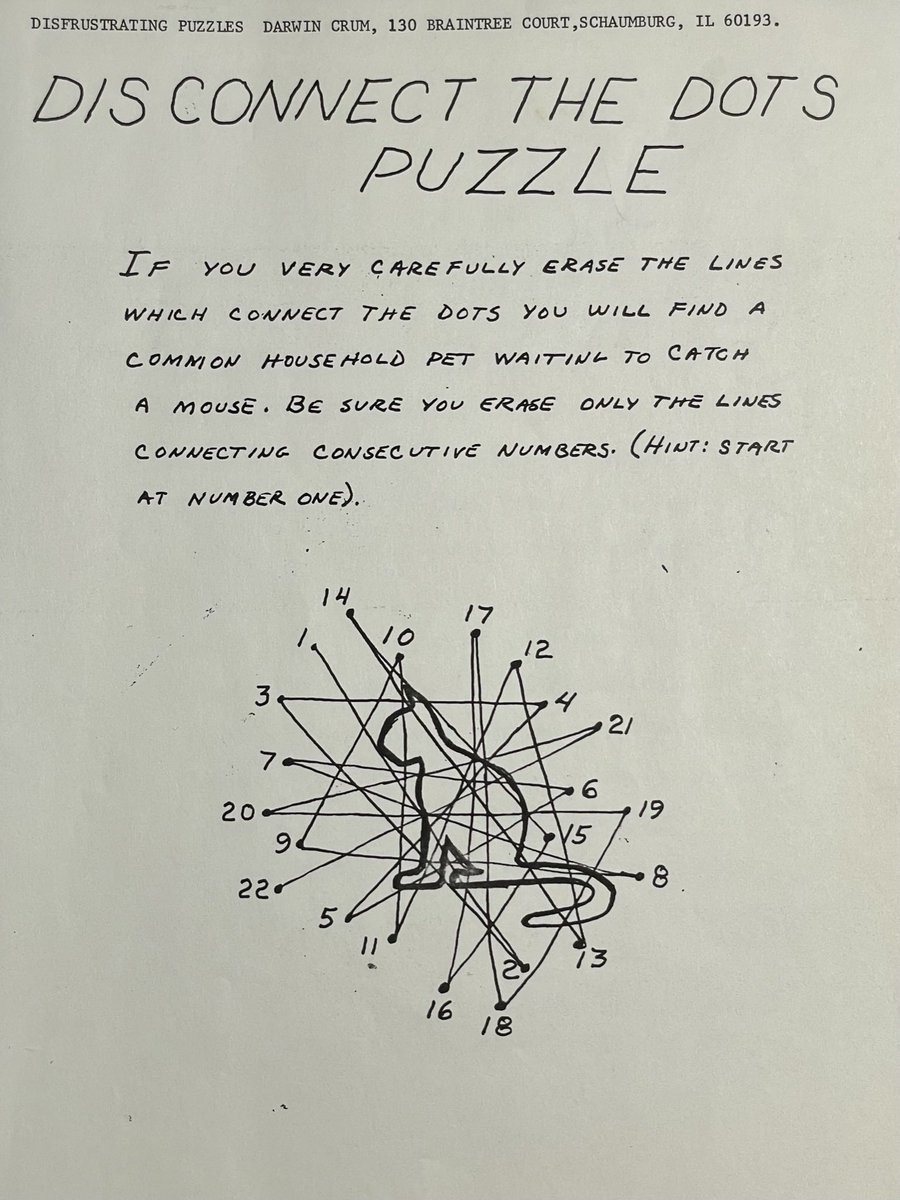 DISFRUSTRATING PUZZLES DARWIN CRUM, 130 BRAINTREE COURT,SCHAUMBURG, IL 60193.
DISCONNECT THE DOTS
PUZZLE
IF YOU VERY CAREFULLY ERASE THE LINES
WHICH CONNECT THE DOTS YOU WILL FIND A
COMMON HOUSEHOLD PET WAITING TO CATCH
A MOUSE. BE SURE YOU ERASE ONLY THE LINES
CONNECTING CONSECUTIVE NUMBERS. (HINT: START
AT NUMBER ONE).
14
17
1
10
12
3
4
21
7
6
20
19
15
9
8
22
5
11
13
2
16
18